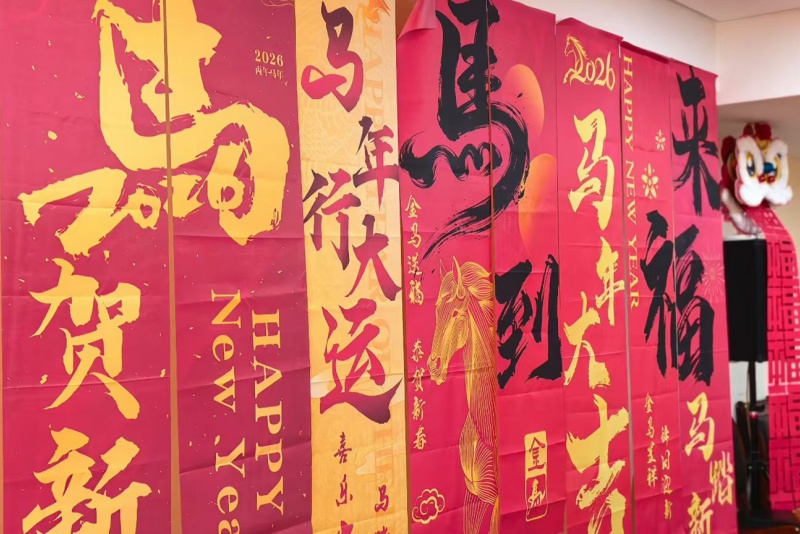 馬
2026
2026
丙午·马年
贺
新
HAPPY
New Yea
马年行大运
喜乐
馬到
金马送福 恭贺新春
2026
马年大吉
HAPPY NEW YEAR
来福
金马呈祥
马踏新